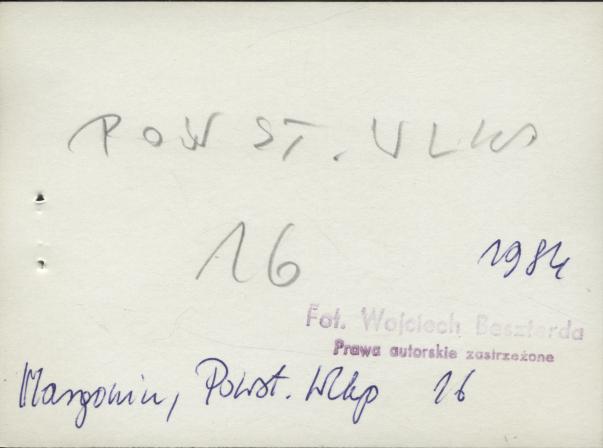 POWST. WLKP
16
1984
Fot. Wojciech Beszterda
Prawa autorskie zastrzeżone
Margonin, Powst. Wlkp 16